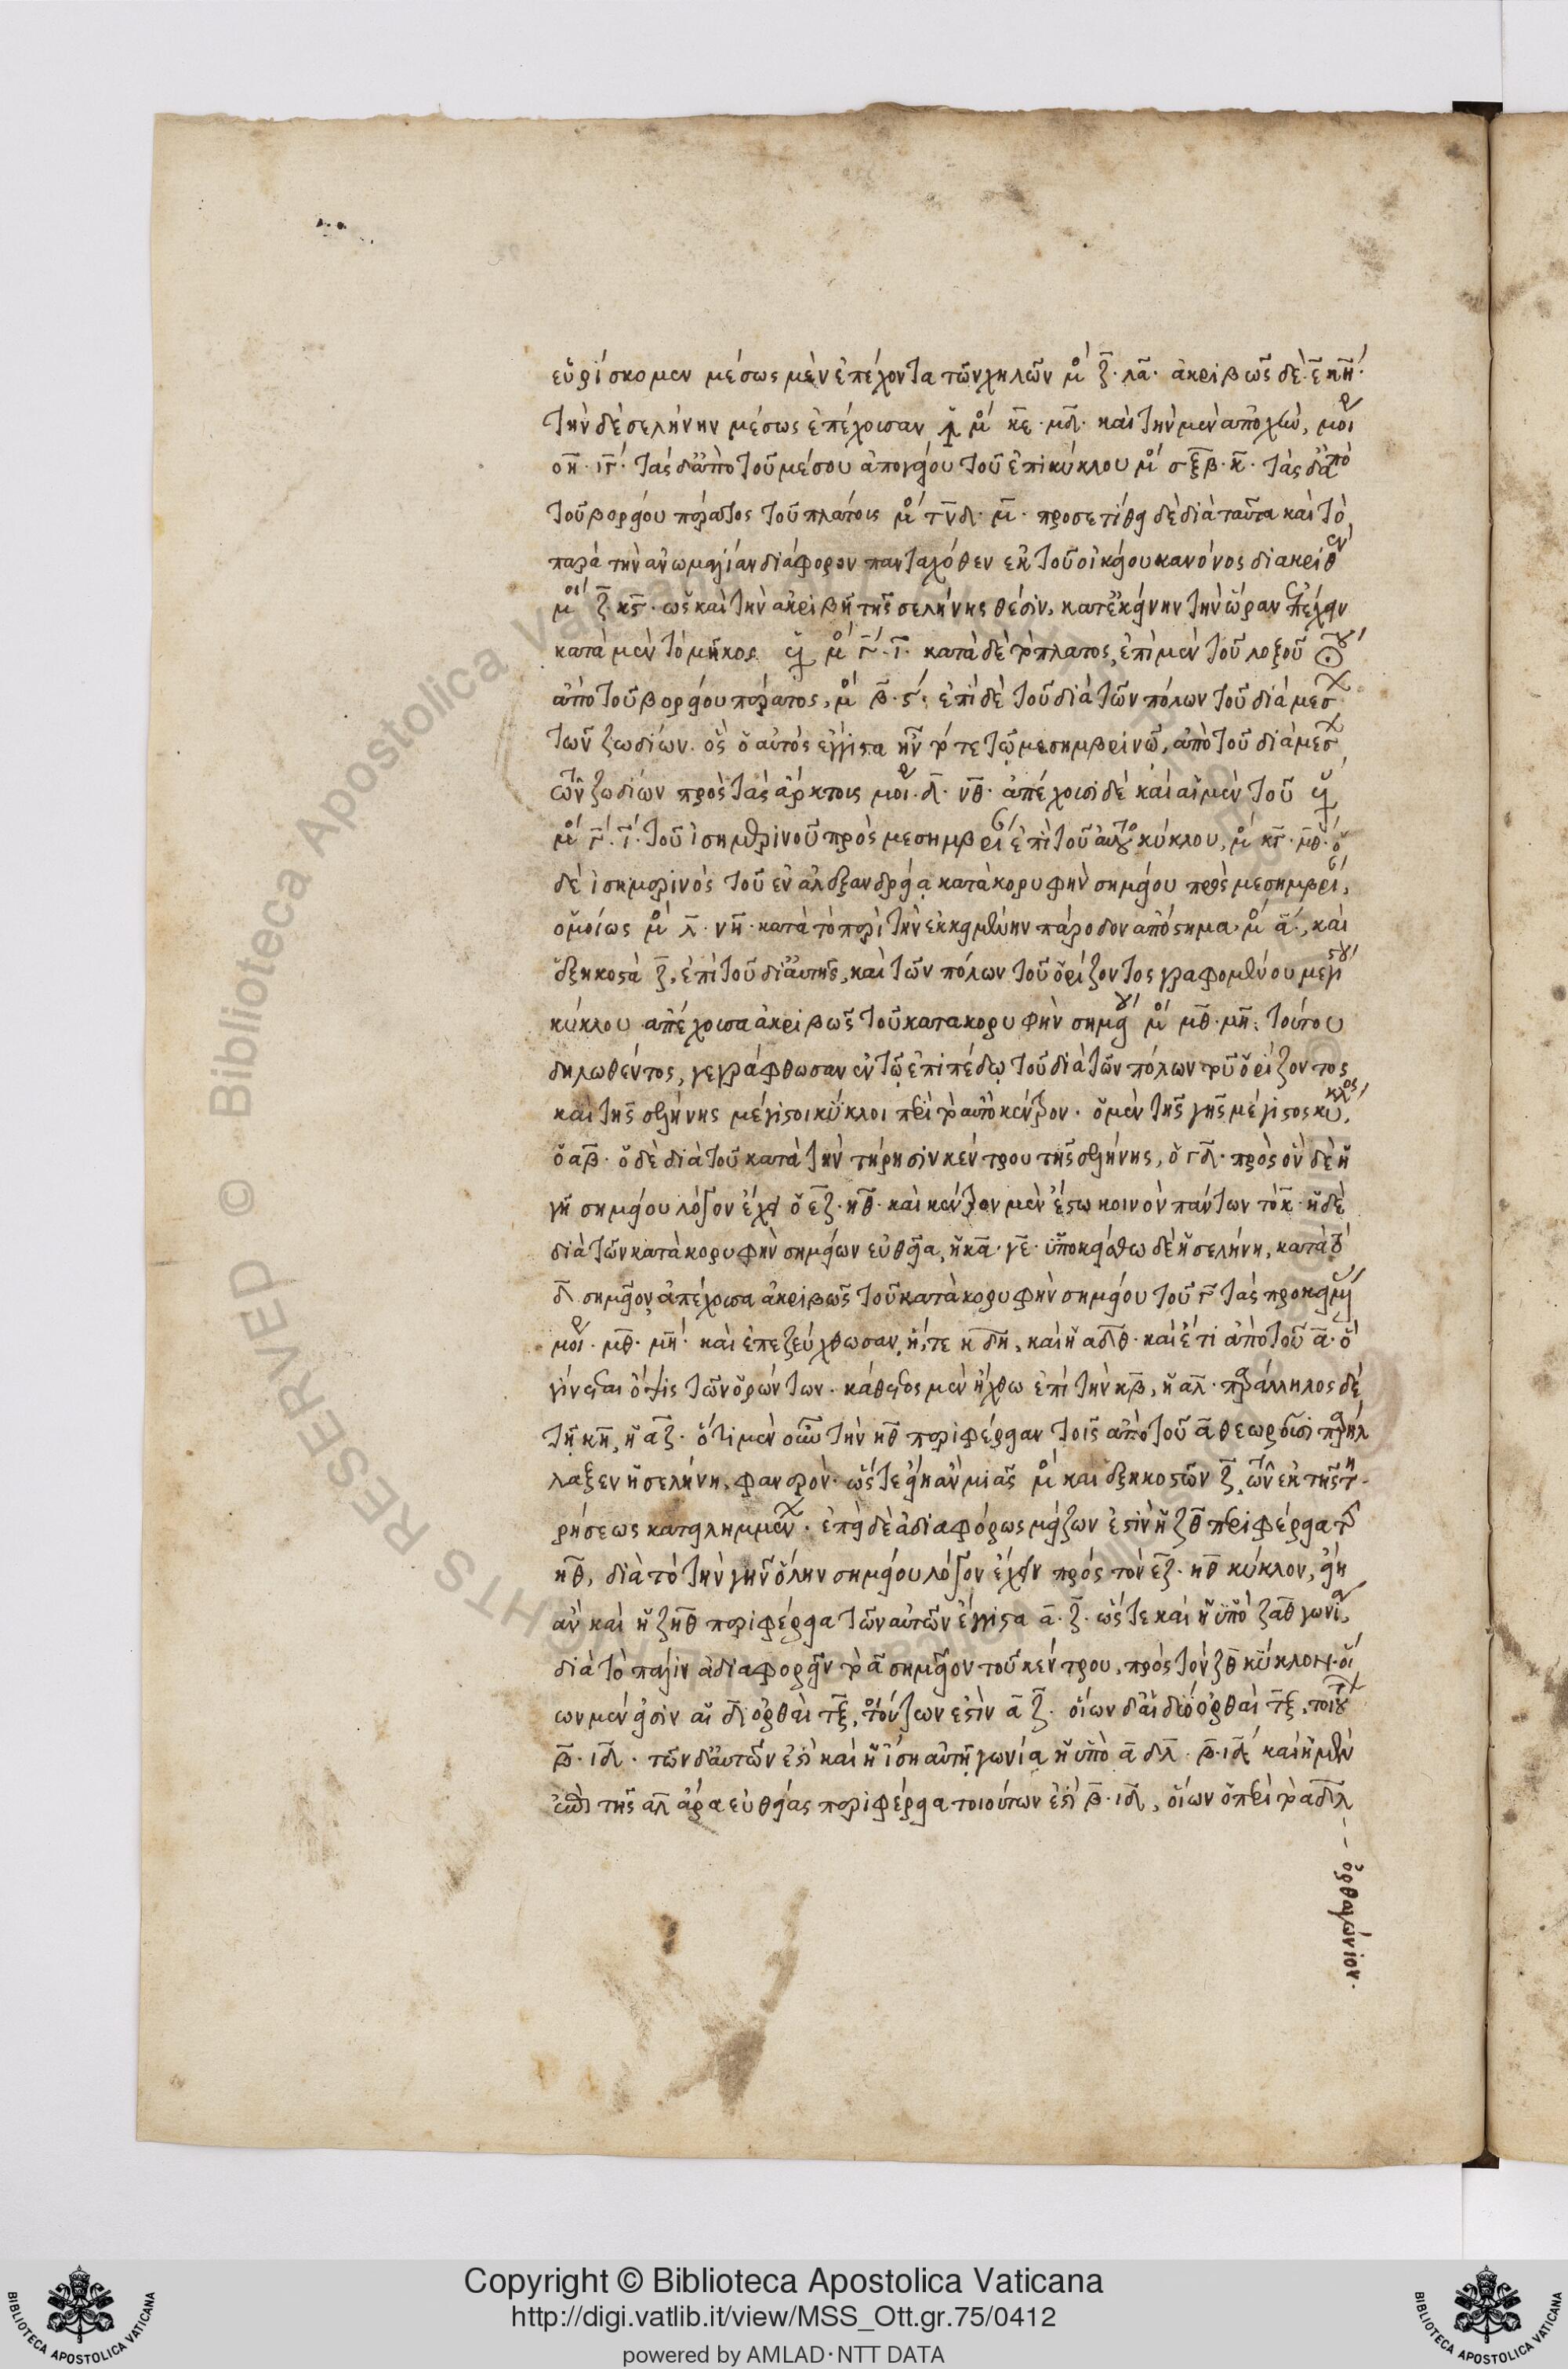 εὑρίσκομεν μέσως μὲν ἐπέχοντα τῶν χηλῶν μο̅ ζ̅· λα̅· ἀκριβῶς δὲ· ε̅ κη̅·
τὴν δὲ σελήνην μέσως ἐπέχουσαν μο̅ κε̅· μδ̅· καὶ τὴν μὲν ἀποχὴν, μοι
οη̅· ιγ̅· τὰς δ' ἀπὸ τοῦ μέσου ἀπογείου τοῦ ἐπικύκλου μο̅ σξ̅β· κ̅· τὰς δ' ἀπὸ
τοῦ βορείου πέρατος τοῦ πλάτους μο̅ τν̅δ· μ̅· προσετίθει δὲ διὰ ταῦτα καὶ τὸ
παρὰ τὴν ἀνωμαλίαν διάφορον πανταχόθεν ἐκ τοῦ οἰκείου κανόνος διακριθὲν
μοι ζ̅· κϛ̅· ὡς καὶ τὴν ἀκριβῆ τῆς σελήνης θέσιν, κατ' ἐκείνην τὴν ὥραν ἐπέχειν
κατὰ μὲν τὸ μῆκος μο̅ γ̅· ι̅· κατὰ δὲ τὸ πλάτος, ἐπὶ μὲν τοῦ λοξοῦ
ἀπὸ τοῦ βορείου πέρατος, μο̅ β̅· ϛ· ἐπὶ δὲ τοῦ διὰ τῶν πόλων τοῦ διὰ μέσων
τῶν ζωδίων· ὃς ὁ αὐτὸς ἔγγιστα ἦν τότε τῷ μεσημβρινῷ, ἀπὸ τοῦ διὰ μέσων
τῶν ζωδίων πρὸς τὰς ἄρκτους μοι· δ̅· νθ̅· ἀπέχουσι δὲ καὶ αἱ μὲν τοῦ
μο̅ γ̅· ι̅· τοῦ ἰσημερινοῦ πρὸς μεσημβρί ἐπὶ τοῦ αὐτοῦ κύκλου, μο̅ κγ̅· μθ̅· ὁ
δὲ ἰσημερινὸς τοῦ ἐν ἀλεξανδρείᾳ κατὰ κορυφὴν σημείου πρὸς μεσημβρί,
ὁμοίως μο̅ λ̅· νη̅· κατὰ τὸ περὶ τὴν ἐκκειμένην πάροδον ἀπόστημα, μο̅ α̅, καὶ
ἑξηκοστὰ ζ̅, ἐπὶ τοῦ δι' αὐτῆς, καὶ τῶν πόλων τοῦ ὁρίζοντος γραφομένου μεγίστου
κύκλου ἀπέχουσα ἀκριβῶς τοῦ κατὰ κορυφὴν σημείου μο̅ μθ̅· μη̅· τούτου
δηλωθέντος, γεγράφθωσαν ἐν τῷ ἐπιπέδῳ τοῦ διὰ τῶν πόλων τοῦ ὁρίζοντος
καὶ τῆς σελήνης μέγιστοι κύκλοι περὶ τὸ αὐτὸ κέντρον· ὁ μὲν τῆς γῆς μέγιστος κύκλος,
ὁ αβ̅· ὁ δὲ διὰ τοῦ κατὰ τὴν τήρησιν κέντρου τῆς σελήνης, ὁ γδ̅· πρὸς ὃν δὲ ἡ
γῆ σημείου λόγον ἔχει ὁ εζ̅· ηθ̅· καὶ κέντρον μὲν ἔστω κοινὸν πάντων τὸ κ̅· ἡ δὲ
διὰ τῶν κατὰ κορυφὴν σημείων εὐθεῖα, ἡ κα̅· γε̅· ὑποκείσθω δὲ ἡ σελήνη, κατὰ τὸ
δ̅ σημεῖον ἀπέχουσα ἀκριβῶς τοῦ κατὰ κορυφὴν σημείου τοῦ γ̅ τὰς προκειμέ
μοι· μθ̅· μη̅· καὶ ἐπεζεύχθωσαν ἥ, τε κ δη̅, καὶ ἡ αδ̅θ· καὶ ἔτι ἀπὸ τοῦ α̅· ὃ
γίνεται ὄψις τῶν ὁρώντων· κάθετος μὲν ἤχθω ἐπὶ τὴν κβ̅, ἡ αλ̅· παράλληλος δὲ
τῇ κη̅, ἡ αζ̅· ὅτι μὲν οὖν τὴν ηθ̅ περιφέρειαν τοῖς ἀπὸ τοῦ α̅ θεωροῦσι παρήλ
λαξεν ἡ σελήνη, φανερόν· ὥστε εἴη ἂν μιᾶς μο̅ καὶ ἑξηκοστῶν ζ̅, τῶν ἐκ τῆς τη
ρήσεως κατειλημμένων· ἐπεὶ δὲ ἀδιαφόρως μείζων ἐστὶν ἡ ζθ̅ περιφέρεια τῆς
ηθ̅, διὰ τὸ τὴν γῆν ὅλην σημείου λόγον ἔχειν πρὸς τὸν εζ̅· ηθ̅ κύκλον, εἴη
ἂν καὶ ἡ ζηθ̅ περιφέρεια τῶν αὐτῶν ἔγγιστα α̅· ζ̅· ὥστε καὶ ἡ ὑπὸ ζαθ̅ γωνία,
διὰ τὸ πάλιν ἀδιαφορεῖν τὸ α̅ σημεῖον τοῦ κέντρου, πρὸς τὸν ζθ̅ κύκλον· οἵ
ων μέν εἰσιν αἱ δ̅ ὀρθαὶ τξ̅, τούτων ἐστὶν α̅ ζ̅· οἵων δ' αἱ δύο ὀρθαὶ τξ̅, τοιούτων
β̅· ιδ̅· τῶν δ' αὐτῶν ἐστὶ καὶ ἡ ἴση αὐτῇ γωνία ἡ ὑπὸ α̅ δλ̅· β̅· ιδ̅ καὶ ἡ μὲν
ἐπὶ τῆς αλ̅ ἄρα εὐθείας περιφέρεια τοιούτων ἐστὶ β̅· ιδ̅, οἵων ὁ περὶ τὸ αδλ̅
ὀρθογώνιον·
Copyright © Biblioteca Apostolica Vaticana
http://digi.vatlib.it/view/MSS_Ott.gr.75/0412
powered by AMLAD·NTT DATA
BIBLIOTECA APOSTOLICA VATICANA
BIBLIOTECA APOSTOLICA VATICANA
RIGHTS RESERVED © Biblioteca Apostolica Vaticana